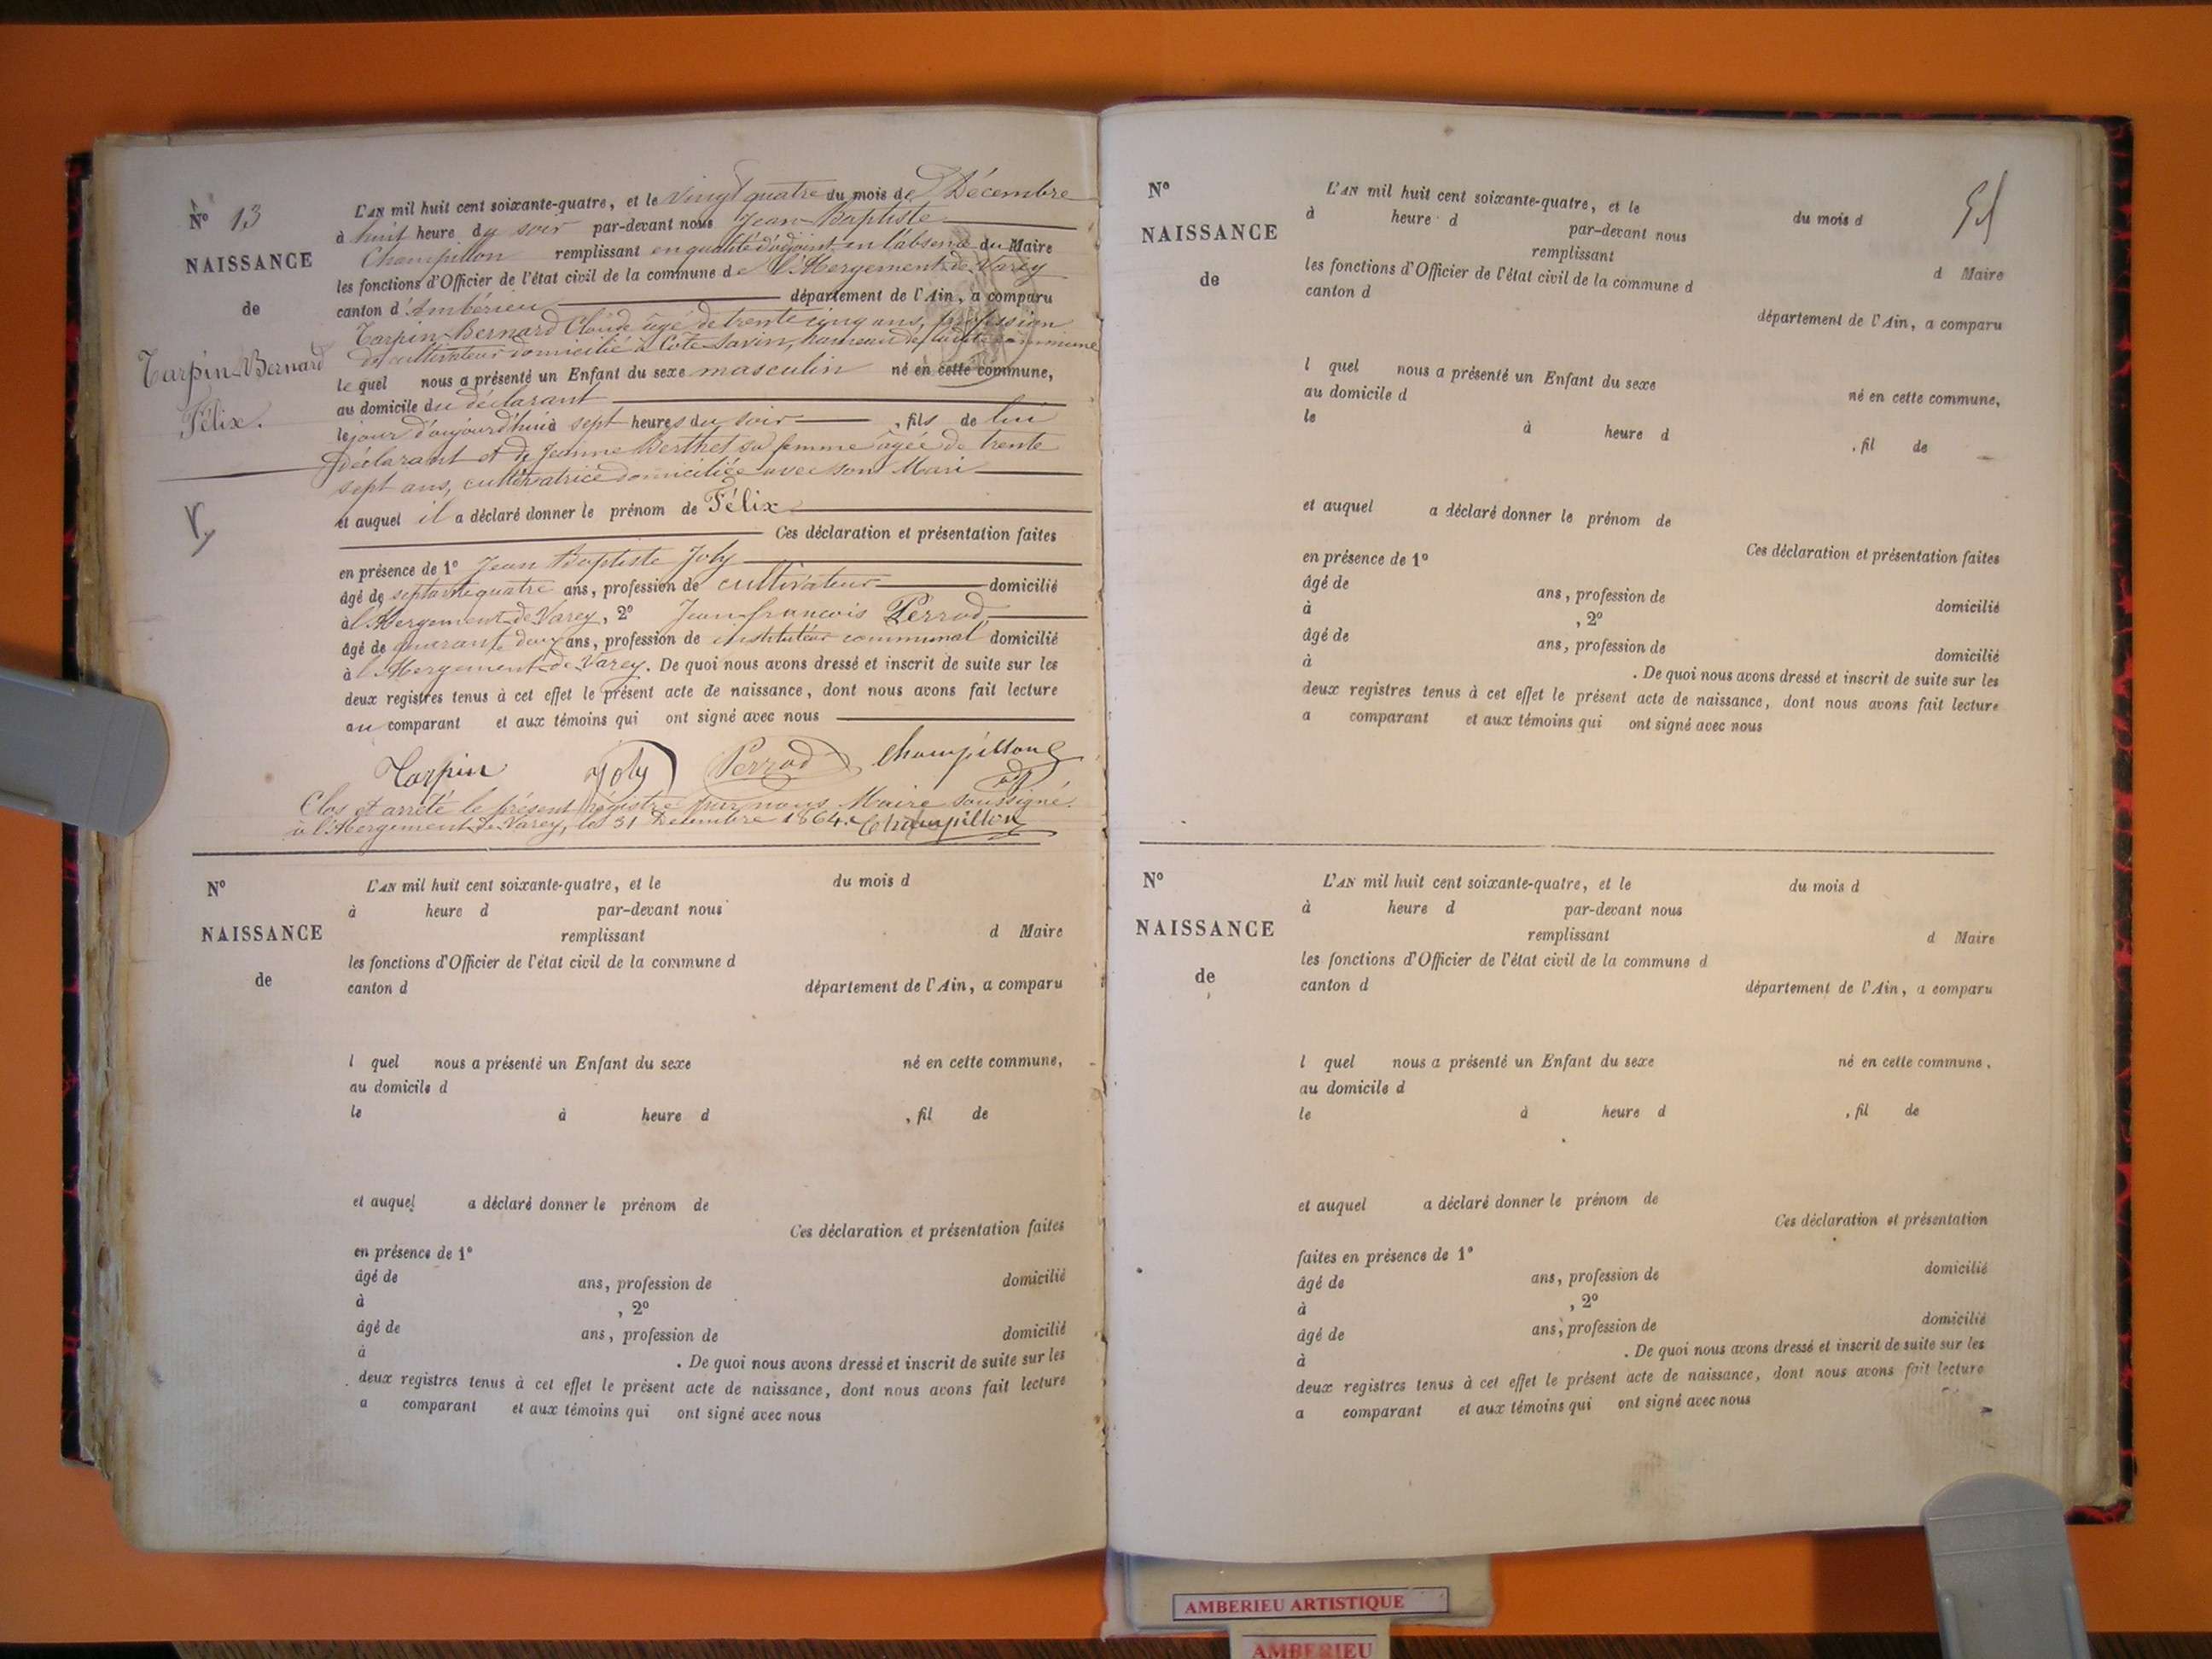 N° 13
NAISSANCE
de
Tarpin-Bernard
Félix.
L'AN mil huit cent soixante-quatre, et le vingt quatre du mois de Décembre
à huit heure du soir par-devant nous Jean-Baptiste
Champillon remplissant en qualité d'adjoint en l'absence du Maire
les fonctions d'Officier de l'état civil de la commune de l'Abergement-de-Varey
canton d'Ambérieu département de l'Ain, a comparu
Tarpin-Bernard Claude âgé de trente cinq ans, profession
de cultivateur domicilié à Côte-Savin, hameau de ladite commune
le quel nous a présenté un Enfant du sexe masculin né en cette commune,
au domicile du déclarant
le jour d'aujourd'hui à sept heures du soir , fils de lui
déclarant et de Jeanne Berthet sa femme âgée de trente
sept ans, cultivatrice domiciliée avec son Mari
et auquel il a déclaré donner le prénom de Félix
Ces déclaration et présentation faites
en présence de 1° Jean Baptiste Joly
âgé de septante quatre ans, profession de cultivateur domicilié
à l'Abergement-de-Varey, 2° Jean-francois Perrod
âgé de quarante deux ans, profession de instituteur communal domicilié
à l'Abergement-de-Varey. De quoi nous avons dressé et inscrit de suite sur les
deux registres tenus à cet effet le présent acte de naissance, dont nous avons fait lecture
au comparant et aux témoins qui ont signé avec nous
Tarpin Joly Perrod Champillon
adj
Clos et arrêté le présent régistre par nous Maire soussigné.
à l'Abergement-de-Varey, le 31 Décembre 1864. Champillon
N°
NAISSANCE
de
L'AN mil huit cent soixante-quatre, et le du mois d
à heure d par-devant nous
remplissant d Maire
les fonctions d'Officier de l'état civil de la commune d
canton d département de l'Ain, a comparu
l quel nous a présenté un Enfant du sexe né en cette commune,
au domicile d
le à heure d , fil de
et auquel a déclaré donner le prénom de
Ces déclaration et présentation faites
en présence de 1°
âgé de ans, profession de domicilié
à , 2°
âgé de ans, profession de domicilié
à . De quoi nous avons dressé et inscrit de suite sur les
deux registres tenus à cet effet le présent acte de naissance, dont nous avons fait lecture
a comparant et aux témoins qui ont signé avec nous
N°
NAISSANCE
de
L'AN mil huit cent soixante-quatre, et le du mois d
à heure d par-devant nous
remplissant d Maire
les fonctions d'Officier de l'état civil de la commune d
canton d département de l'Ain, a comparu
l quel nous a présenté un Enfant du sexe né en cette commune,
au domicile d
le à heure d , fil de
et auquel a déclaré donner le prénom de
Ces déclaration et présentation faites
en présence de 1°
âgé de ans, profession de domicilié
à , 2°
âgé de ans, profession de domicilié
à . De quoi nous avons dressé et inscrit de suite sur les
deux registres tenus à cet effet le présent acte de naissance, dont nous avons fait lecture
a comparant et aux témoins qui ont signé avec nous
N°
NAISSANCE
de
L'AN mil huit cent soixante-quatre, et le du mois d
à heure d par-devant nous
remplissant d Maire
les fonctions d'Officier de l'état civil de la commune d
canton d département de l'Ain, a comparu
l quel nous a présenté un Enfant du sexe né en cette commune,
au domicile d
le à heure d , fil de
et auquel a déclaré donner le prénom de
Ces déclaration et présentation
faites en présence de 1°
âgé de ans, profession de domicilié
à , 2°
âgé de ans, profession de domicilié
à . De quoi nous avons dressé et inscrit de suite sur les
deux registres tenus à cet effet le présent acte de naissance, dont nous avons fait lecture
a comparant et aux témoins qui ont signé avec nous
AMBERIEU ARTISTIQUE
AMBERIEU